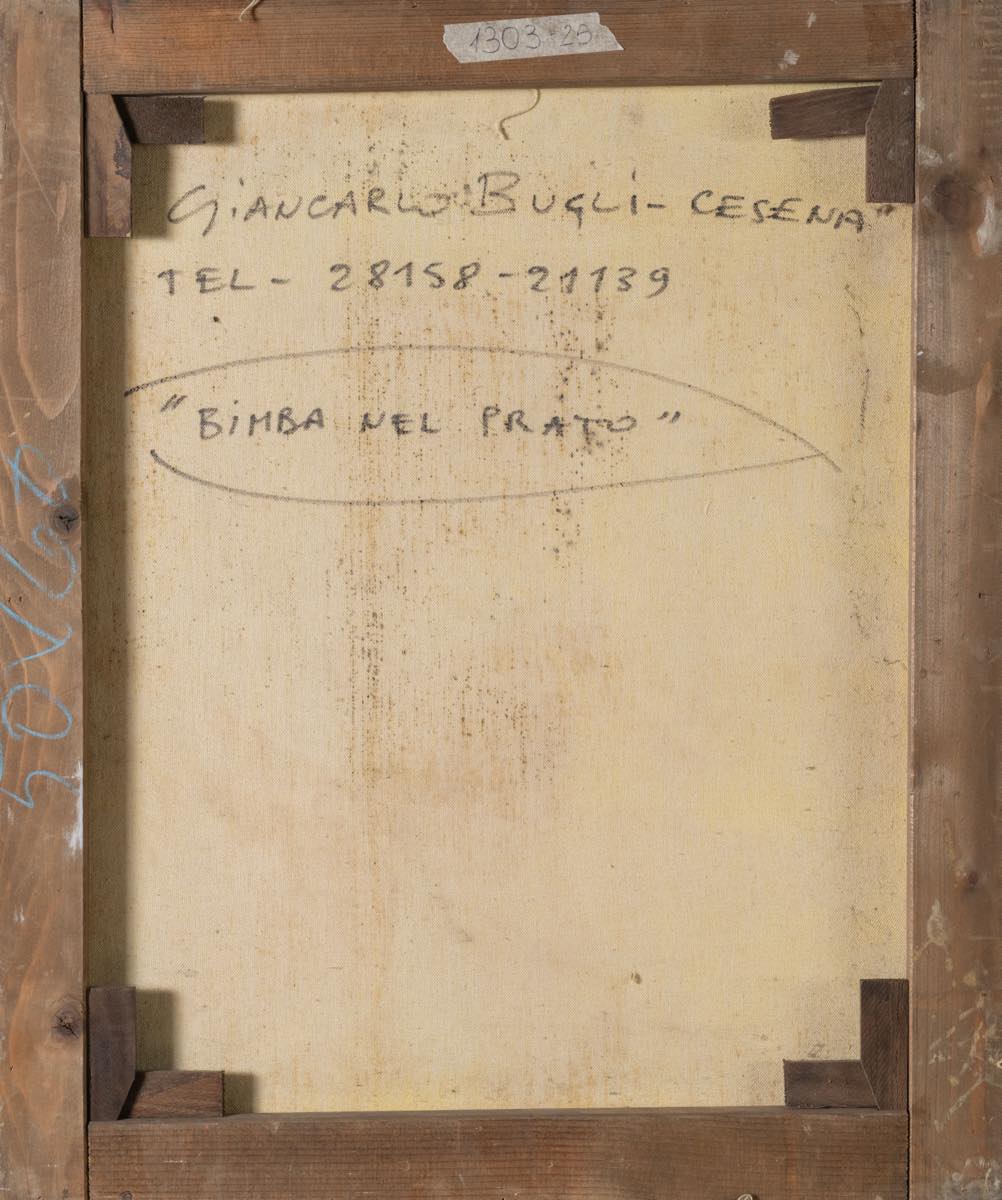 1303-25
GiANCARLO BUGLi - CESENA
TEL - 28158 - 21139
"BiMBA NEL PRATO"
50V67